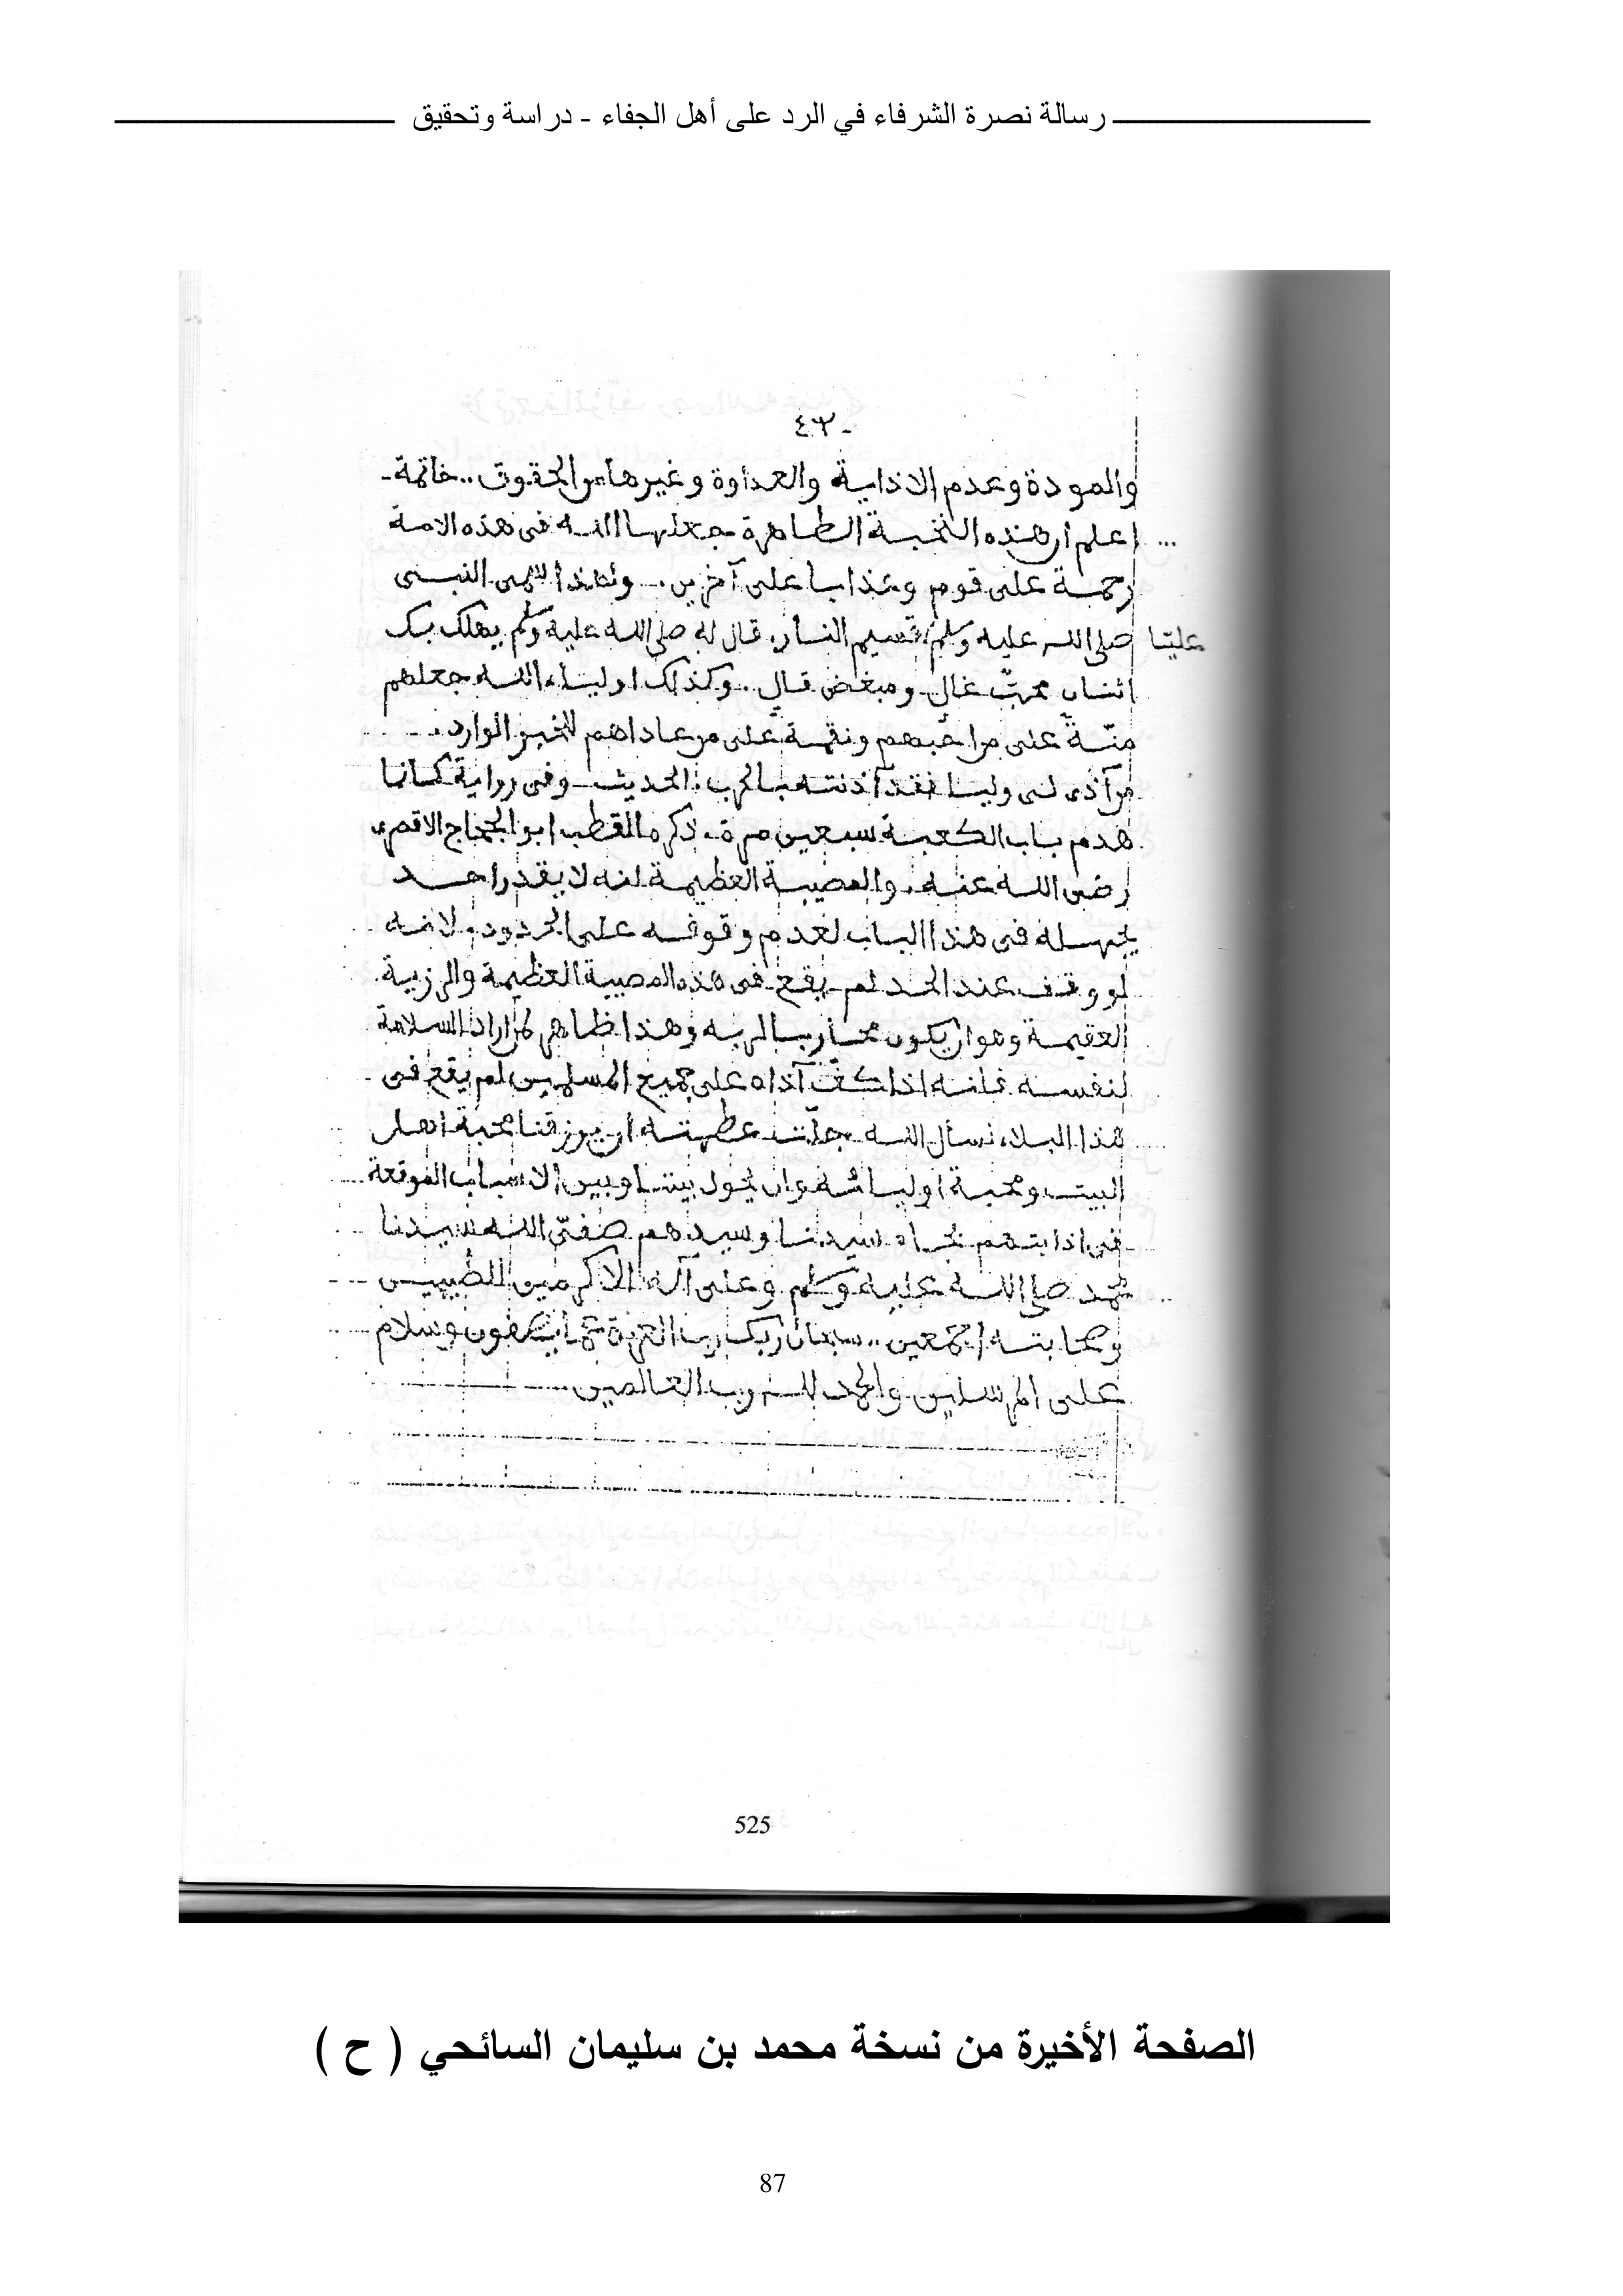 رسالة نصرة الشرفاء في الرد على أهل الجفاء - دراسة وتحقيق
ـ ٤٣
والمودة وعدم الاذاية والعداوة وغيرها من الحقوق .. خاتمة ـ
اعلم ان هذه النخبة الطاهرة جعلها الله فى هذه الامة
رحمة على قوم وعذابا على آخرين . ولهذا سمى النبى
عليا صلى الله عليه وسلم قسيم النار. قال له صلى الله عليه وسلم يهلك بك
اثنان محبّ غال ومبغض قال .. وكذلك اولياء الله جعلهم
منّة على من احبهم ونقمة على من عاداهم للخبر الوارد .
من آذى لى وليا فقد آذنته بالحرب . الحديث ـ وفى رواية كانما
هدم باب الكعبة سبعين مرة . ذكره القطب ابو الحجاج الاقصرى
رضى الله عنه . والمصيبة العظيمة انه لا يقدر احد
يجهله فى هذا الباب لعدم وقوفه على الحدود . لانه
لو وقف عند الحد لم يقع فى هذه المصيبة العظيمة والرزية
العقيمة وهو ان يكون محاربا لربه وهذا ظاهر لمن اراد السلامة
لنفسه فانه اذا كفّ آذاه على جميع المسلمين لم يقع فى
هذا البلاء نسأل الله جلّت عظمته ان يرزقنا محبة اهل
البيت ومحبة اوليائه وان يحول بيننا وبين الاسباب الموقعة
فى اذايتهم بجاه سيدنا وسيدهم سيدنا
محمد صلى الله عليه وسلم وعلى آله الاكرمين الطيبين
وصحابته اجمعين .. سبحان ربك رب العزة عما يصفون وسلام
على المرسلين والحمد لله رب العالمين
525
الصفحة الأخيرة من نسخة محمد بن سليمان السائحي ( ح )
87